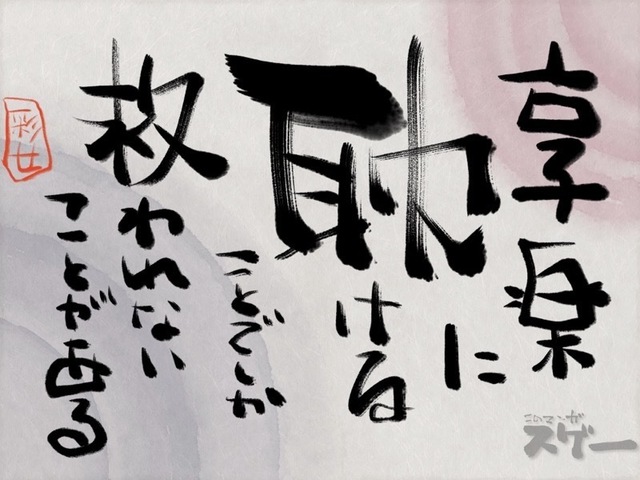 享楽に
耽ける
ことでしか
救われない
ことがある
このマンガ
スゲー